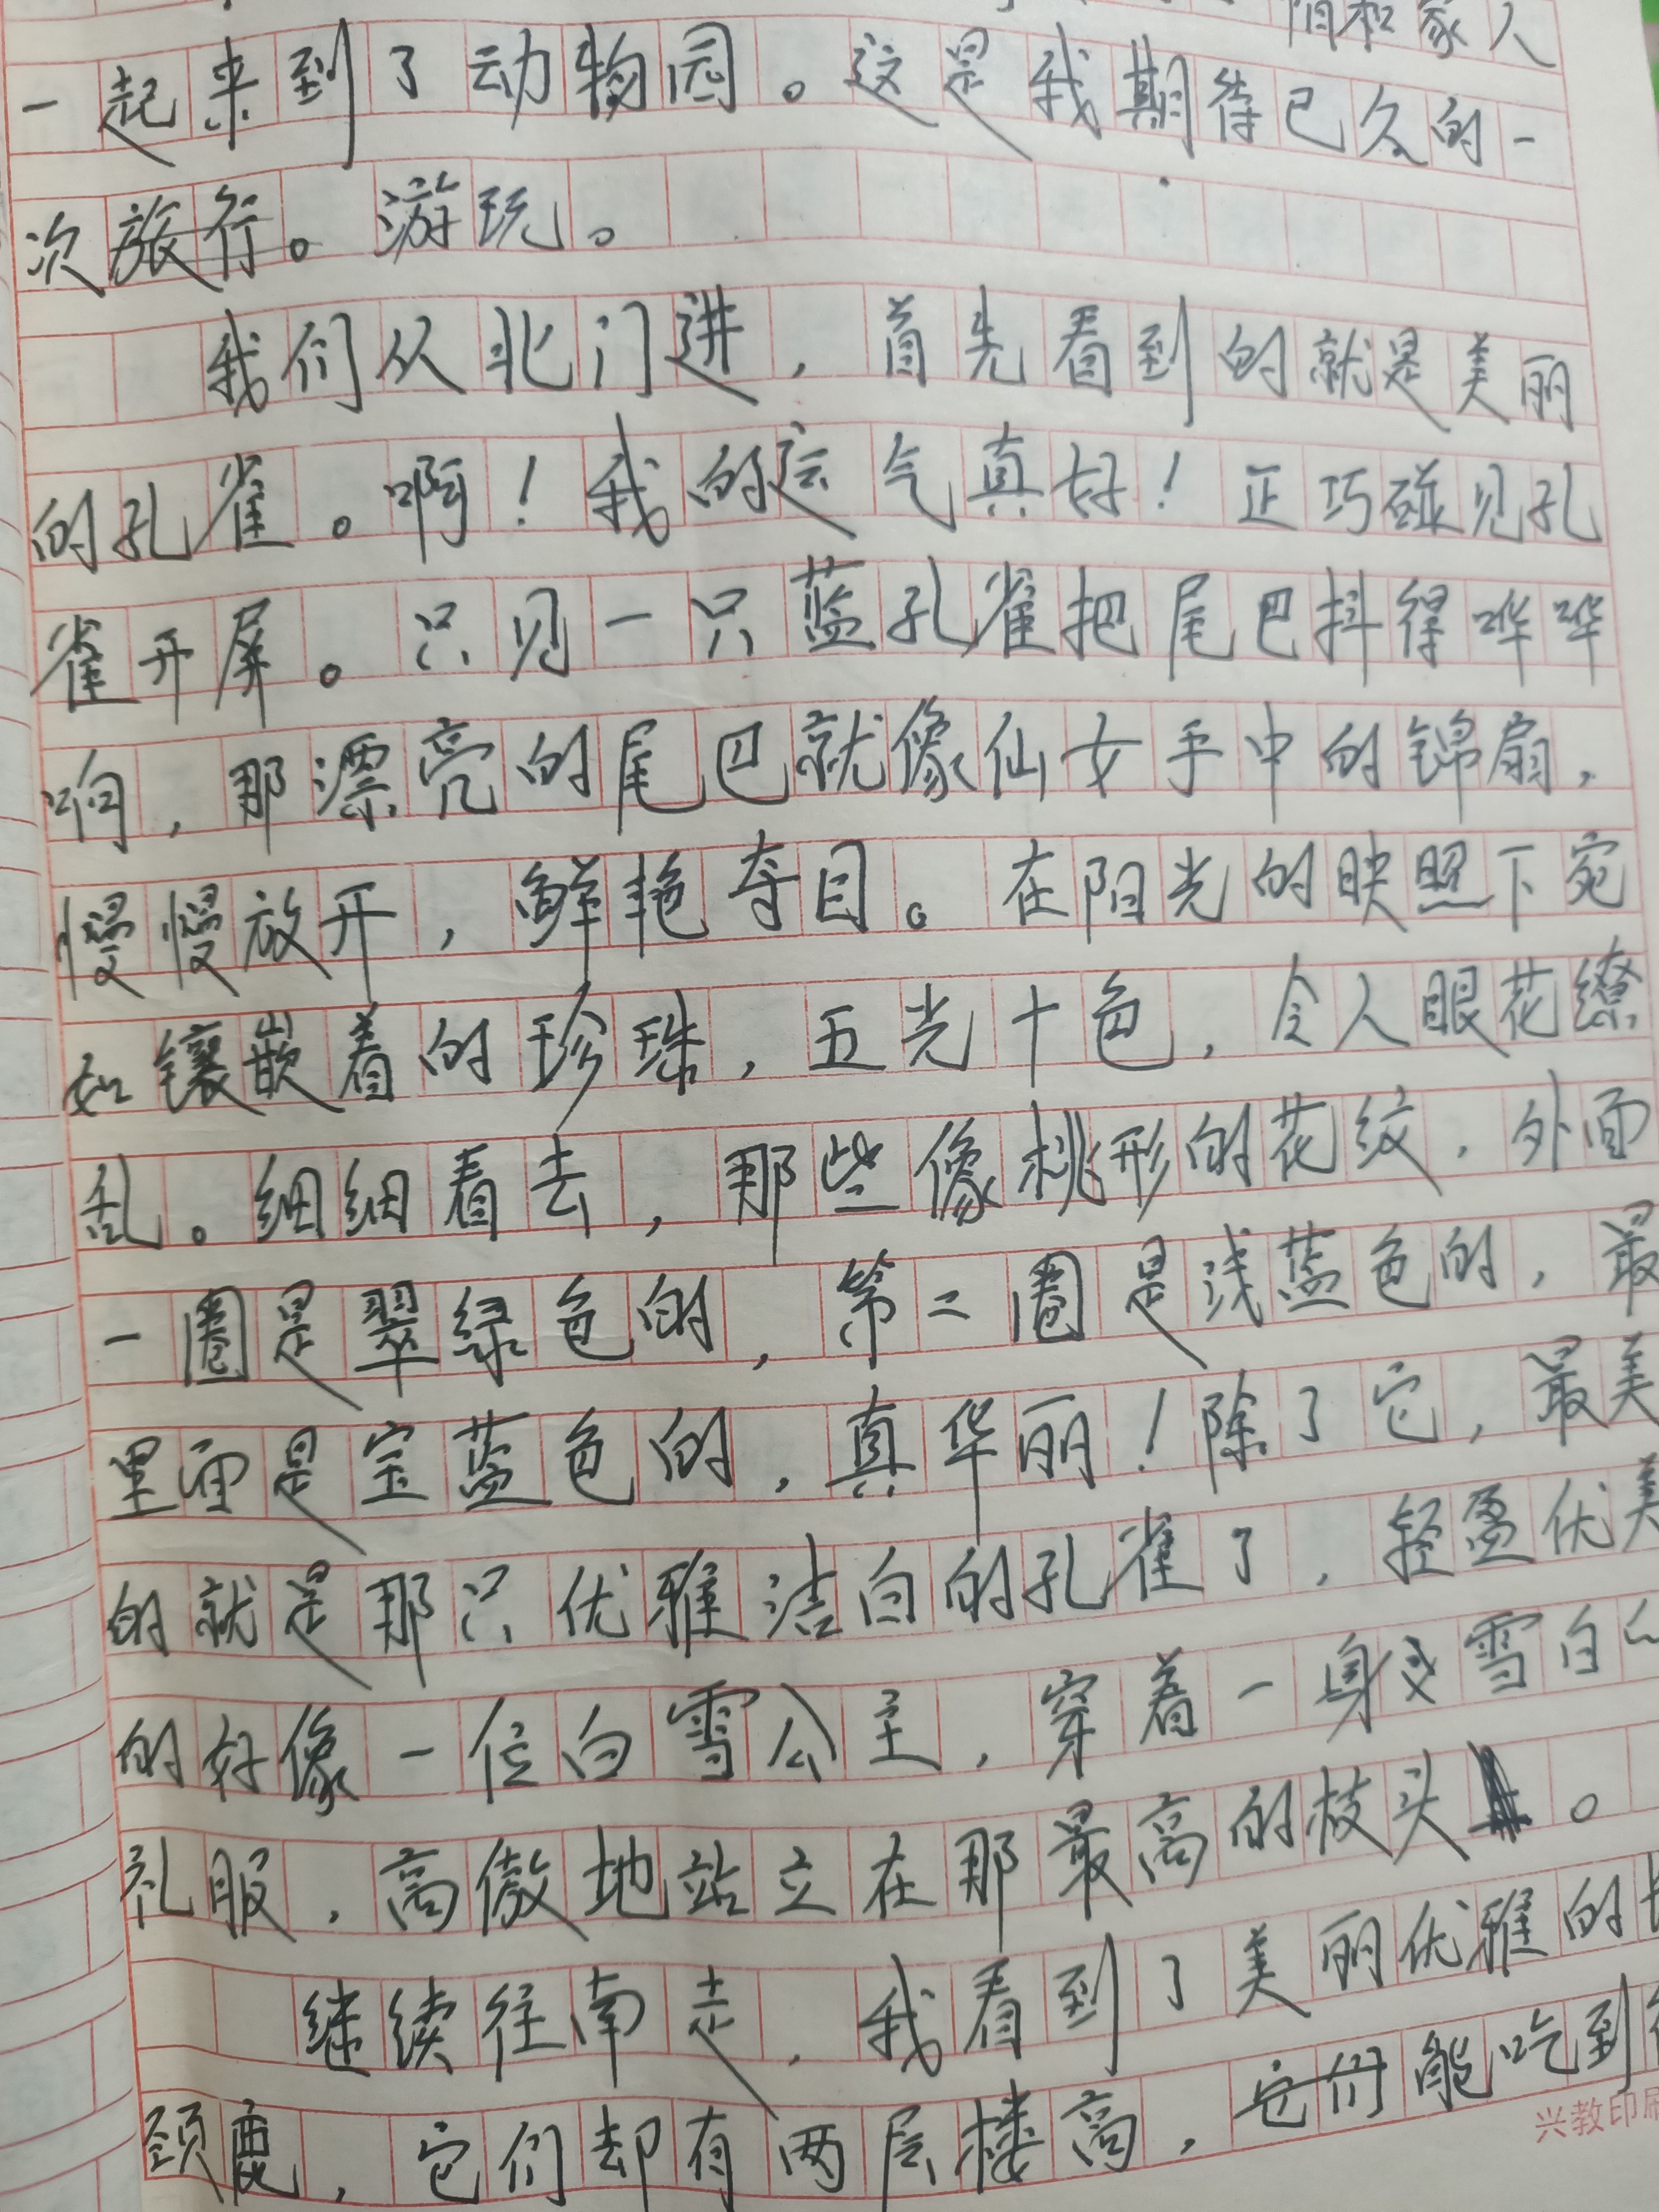 和家人
一起来到了动物园。这是我期待已久的一
次旅行。游玩。
我们从北门进，首先看到的就是美丽
的孔雀。啊！我的运气真好！正巧碰见孔
雀开屏。只见一只蓝孔雀把尾巴抖得哗哗
响，那漂亮的尾巴就像仙女手中的锦扇，
慢慢放开，鲜艳夺目。在阳光的映照下宛
如镶嵌着的珍珠，五光十色，令人眼花缭
乱。细细看去，那些像桃形的花纹，外面
一圈是翠绿色的，第二圈是浅蓝色的，最
里面是宝蓝色的，真华丽！除了它，最美
的就是那只优雅洁白的孔雀了，轻盈优美
的好像一位白雪公主，穿着一身雪白
礼服，高傲地站立在那最高的枝头。
继续往南走，我看到了美丽优雅的长
颈鹿，它们却有两层楼高，它们能吃到
兴教印刷